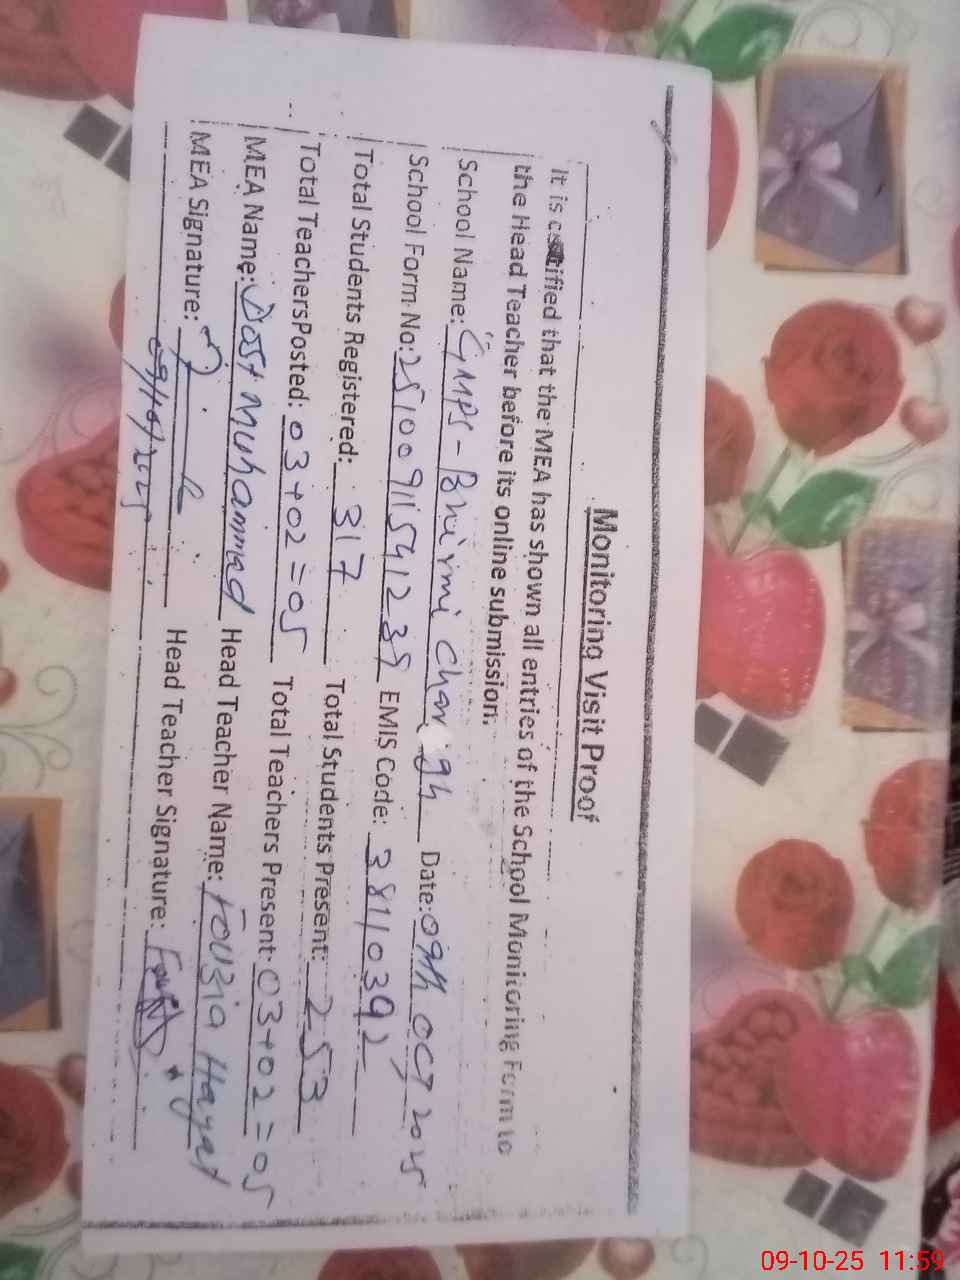 Monitoring Visit Proof
It is certified that the MEA has shown all entries of the School Monitoring Form to
the Head Teacher before its online submission.
School Name: GMPS - Bhirmi Char gh Date: 09th OCT 2025
School Form No: 25100911541235 EMIS Code: 38110392
Total Students Registered: 317 Total Students Present: 253
Total TeachersPosted: 03+02=05 Total Teachers Present: 03+02=05
MEA Name: Dost Muhammad Head Teacher Name: Fouzia Hayat
MEA Signature: Head Teacher Signature:
09/10/2025
09-10-25 11:59